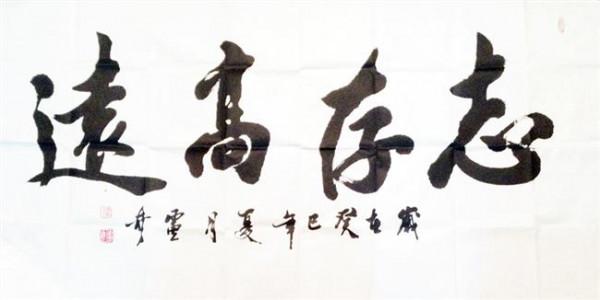 志存高遠
歲在癸巳年夏月靈